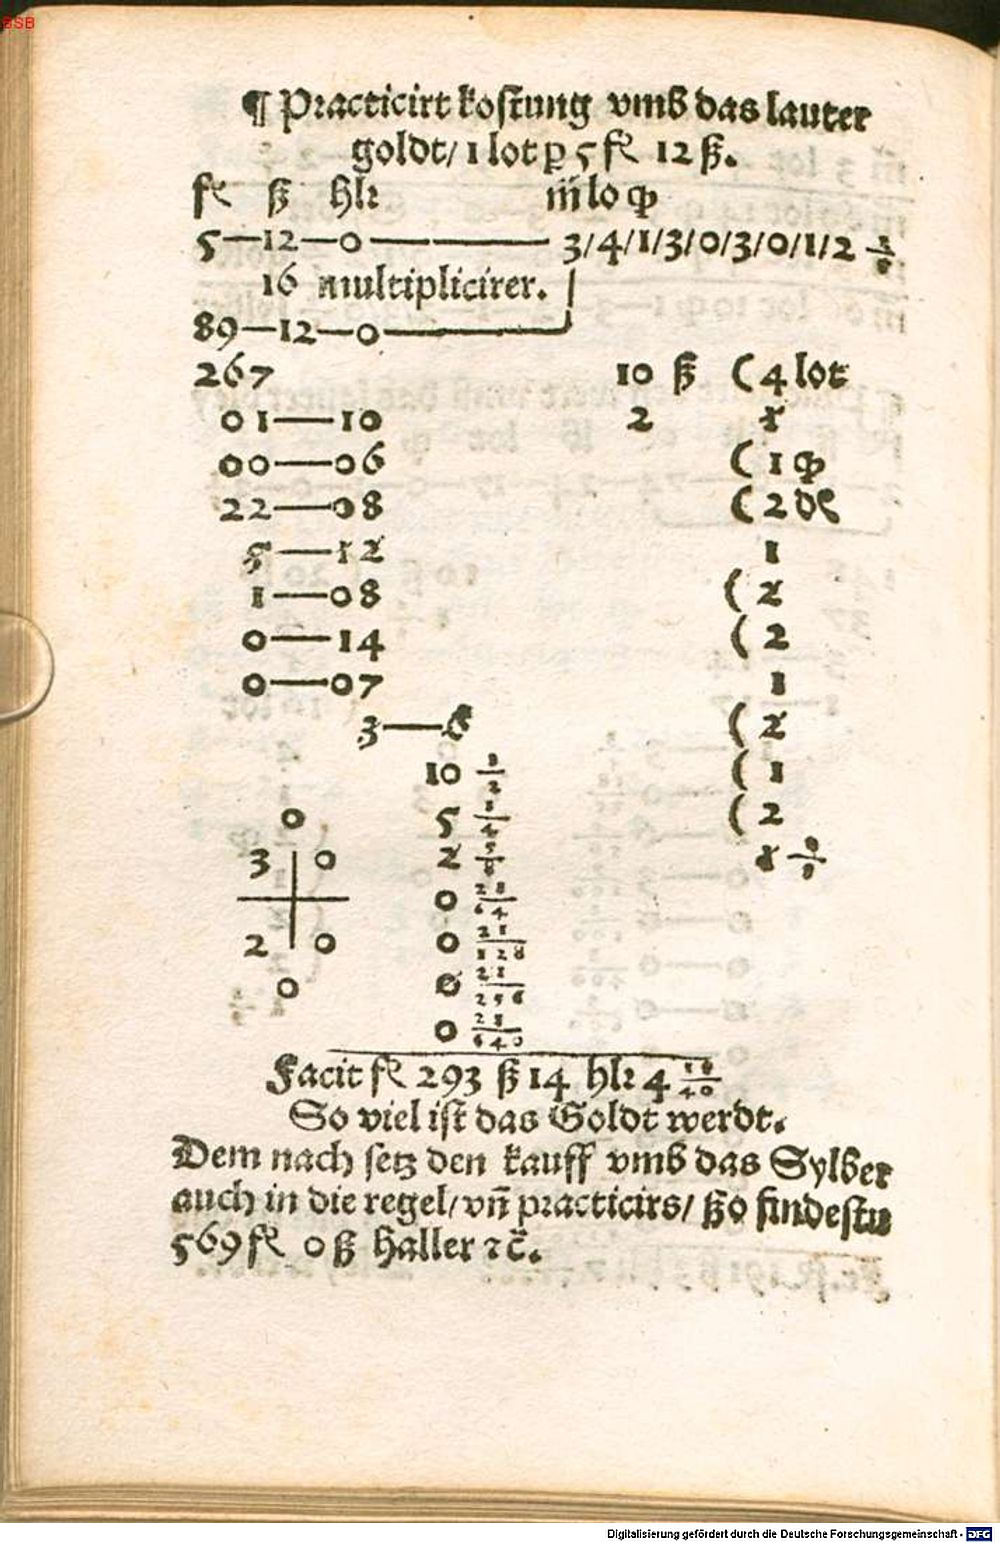 BSB
¶ Practicirt kostung vmb das lauter
goldt/ 1 lot p 5 fl 12 ß.
fl ß hlr m̃ lo qp
5—12—0 ——— 3/4/1/3/0/3/0/1/2
16 multiplicirer.
89—12—0
267 10 ß (4 lot
01—10 2 1
00—06 (1 qp
22—08 (2 ₰
5—12 1
1—08 (2
0—14 (2
0—07 1
3—6 (2
10 1/2 (1
0 5 1/4 (2
3 0 2 5/8 1
0 28/64
2 0 0 21/128
0 0 21/256
0 28/640
Facit fl 293 ß 14 hlr 4
So viel ist das Goldt werdt.
Dem nach setz den kauff vmb das Sylber
auch in die regel/ vñ practicirs/ ßo findestu
569 fl 0 ß haller ⁊c̃.
Digitalisierung gefördert durch die Deutsche Forschungsgemeinschaft - DFG